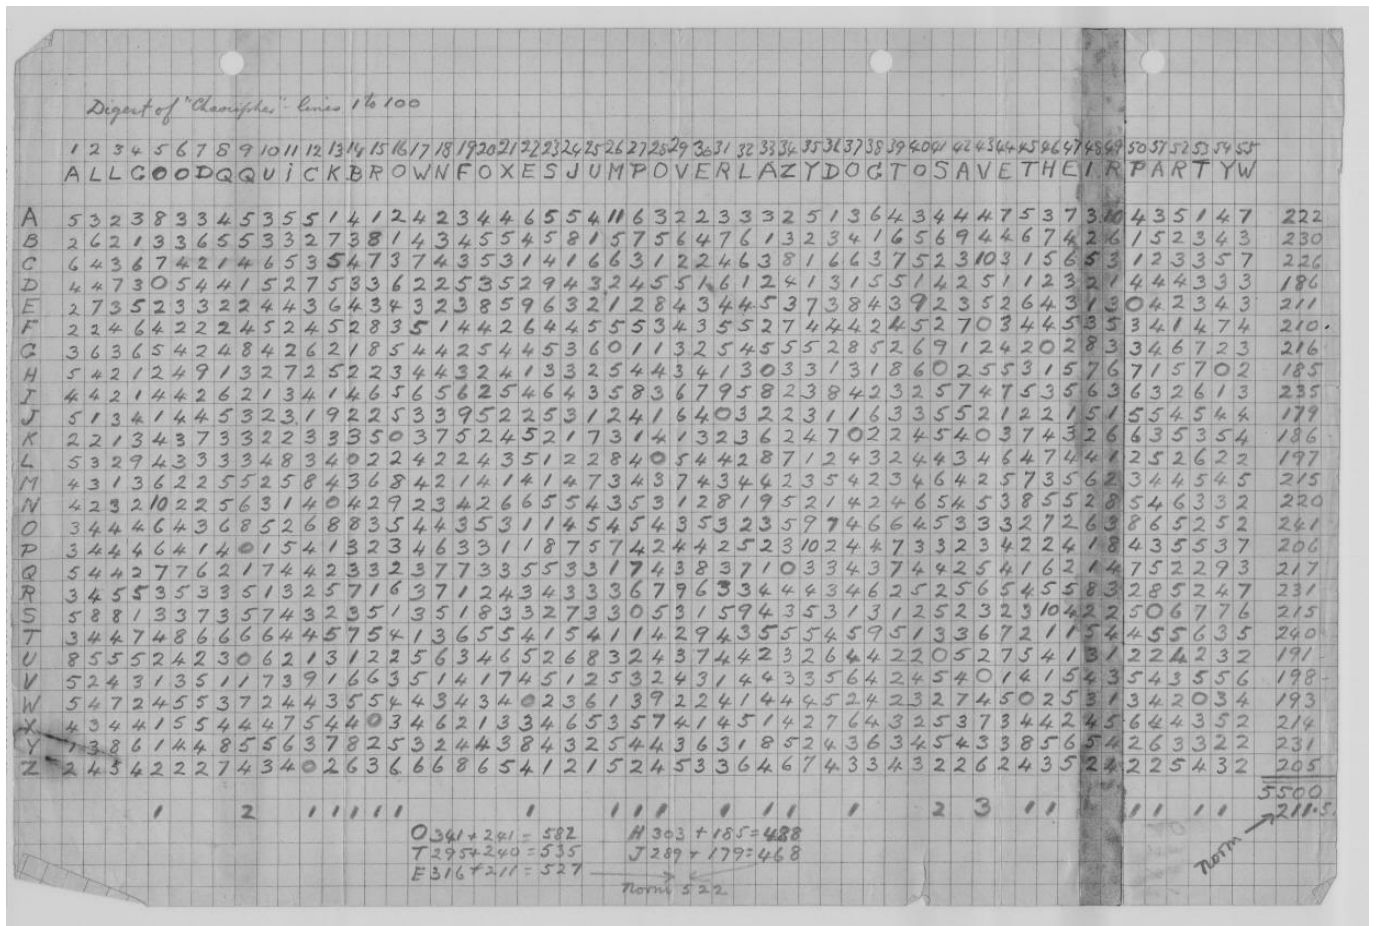 Digest of "Chaocipher" lines 1 to 100
1 2 3 4 5 6 7 8 9 10 11 12 13 14 15 16 17 18 19 20 21 22 23 24 25 26 27 28 29 30 31 32 33 34 35 36 37 38 39 40 41 42 43 44 45 46 47 48 49 50 51 52 53 54 55
A L L G O O D Q Q U i C K B R O W N F O X E S J U M P O V E R L A Z Y D O G T O S A V E T H E I R P A R T Y W
A 5 3 2 3 8 3 3 4 5 3 5 5 1 4 1 2 4 2 3 4 4 6 5 5 4 11 6 3 2 2 3 3 3 2 5 1 3 6 4 3 4 4 4 7 5 3 7 3 10 4 3 5 1 4 7 222
B 2 6 2 1 3 3 6 5 5 3 3 2 7 3 8 1 4 3 4 5 5 4 5 8 1 5 7 5 6 4 7 6 1 3 2 3 4 1 6 5 6 9 4 4 6 7 4 2 6 1 5 2 3 4 3 230
C 6 4 3 6 7 4 2 1 4 6 5 3 5 4 7 3 7 4 3 5 3 1 4 1 6 6 3 1 2 2 4 6 3 8 1 6 6 3 7 5 2 3 10 3 1 5 6 5 3 1 2 3 3 5 7 226
D 4 4 7 3 0 5 4 4 1 5 2 7 5 3 3 6 2 2 5 3 5 2 9 4 3 2 4 5 5 1 6 1 2 4 1 3 1 5 5 1 4 2 5 1 1 2 3 2 1 4 4 4 3 3 3 186
E 2 7 3 5 2 3 3 2 2 4 4 3 6 4 3 4 3 2 3 8 5 9 6 3 2 1 2 8 4 3 4 4 5 3 7 3 8 4 3 9 2 3 5 2 6 4 3 1 3 0 4 2 3 4 3 211
F 2 2 4 6 4 2 2 2 4 5 2 4 5 2 8 3 5 1 4 4 2 6 4 4 5 5 5 3 4 3 5 5 2 7 4 4 4 2 4 5 2 7 0 3 4 4 5 3 5 3 4 1 4 7 4 210.
G 3 6 3 6 5 4 2 4 8 4 2 6 2 1 8 5 4 4 2 5 4 4 5 3 6 0 1 1 3 2 5 4 5 5 5 2 8 5 2 6 9 1 2 4 2 0 2 8 3 3 4 6 7 2 3 216
H 5 4 2 1 2 4 9 1 3 2 7 2 5 2 2 3 4 4 3 2 4 1 3 3 2 5 4 4 3 4 1 3 0 3 3 1 3 1 8 6 0 2 5 5 3 1 5 7 6 7 1 5 7 0 2 185
I 4 4 2 1 4 4 2 6 2 1 3 4 1 4 6 5 6 5 6 2 5 4 6 4 3 5 8 3 6 7 9 5 8 2 3 8 4 2 3 2 5 7 4 7 5 3 5 6 3 6 3 2 6 1 3 235
J 5 1 3 4 1 4 4 5 3 2 3 1 9 2 2 5 3 3 9 5 2 2 5 3 1 2 4 1 6 4 0 3 2 2 3 1 1 6 3 3 5 5 2 1 2 2 1 5 1 5 5 4 5 4 4 179
K 2 2 1 3 4 3 7 3 3 2 2 3 3 3 5 0 3 7 5 2 4 5 2 1 7 3 1 4 1 3 2 3 6 2 4 7 0 2 2 4 5 4 0 3 7 4 3 2 6 6 3 5 3 5 4 186
L 5 3 2 9 4 3 3 3 3 4 8 3 4 0 2 2 4 2 2 4 3 5 1 2 2 8 4 0 5 4 4 2 8 7 1 2 4 3 2 4 4 3 4 6 4 7 4 4 1 2 5 2 6 2 2 197
M 4 3 1 3 6 2 2 5 5 2 5 8 4 3 6 8 4 2 1 4 1 4 1 4 7 3 4 3 7 4 3 4 4 2 3 5 4 2 3 4 6 4 2 5 7 3 5 6 2 3 4 4 5 4 5 215
N 4 2 3 2 10 2 2 5 6 3 1 4 0 4 2 9 2 3 4 2 6 6 5 5 4 3 5 3 1 2 8 1 9 5 2 1 4 2 4 6 5 4 5 3 8 5 5 2 8 5 4 6 3 3 2 220
O 3 4 4 4 6 4 3 6 8 5 2 6 8 8 3 5 4 4 3 5 3 1 1 4 5 4 5 4 3 5 3 2 3 5 9 7 4 6 6 4 5 3 3 3 2 7 2 6 3 8 6 5 2 5 2 241
P 3 4 4 4 6 4 1 4 0 1 5 4 1 3 2 3 4 6 3 3 1 1 8 7 5 7 4 2 4 4 2 5 2 3 10 2 4 4 7 3 3 2 3 4 2 2 4 1 8 4 3 5 5 3 7 206
Q 5 4 4 2 7 7 6 2 1 7 4 4 2 3 3 2 3 7 7 3 3 5 5 3 3 1 7 4 3 8 3 7 1 0 3 3 4 3 7 4 4 2 5 4 1 6 2 1 4 7 5 2 2 9 3 217
R 3 4 5 5 3 5 3 3 5 1 3 2 5 7 1 6 3 7 1 2 4 3 4 3 3 3 6 7 9 6 3 3 4 4 4 3 4 6 2 5 2 5 6 5 4 5 5 8 3 2 8 5 2 4 7 231
S 5 8 8 1 3 3 7 3 5 7 4 3 2 3 5 1 3 5 1 8 3 3 2 7 3 3 0 5 3 1 5 9 4 3 5 3 1 3 1 2 5 2 3 2 3 10 4 2 2 5 0 6 7 7 6 215
T 3 4 4 7 4 8 6 6 6 6 4 4 5 7 5 4 1 3 6 5 5 4 1 5 4 1 1 4 2 9 4 3 5 5 5 4 5 9 5 1 3 3 6 7 2 1 1 5 4 4 5 5 6 3 5 240
U 8 5 5 5 2 4 2 3 0 6 2 1 3 1 2 2 5 6 3 4 6 5 2 6 8 3 2 4 3 7 4 4 2 3 2 6 4 4 2 2 0 5 2 7 5 4 1 3 1 2 2 4 2 3 2 191
V 5 2 4 3 1 3 5 1 1 7 3 9 1 6 6 3 5 1 4 1 7 4 5 1 2 5 3 2 4 3 1 4 4 3 3 5 6 4 2 4 5 4 0 1 4 1 5 4 3 5 4 3 5 5 6 198
W 5 4 7 2 4 5 5 3 7 2 4 4 3 5 5 4 4 3 4 3 4 0 2 3 6 1 3 9 2 2 4 1 4 4 4 5 2 4 2 3 2 7 4 5 0 2 5 3 1 3 4 2 0 3 4 193
X 4 3 4 4 1 5 5 4 4 4 7 5 4 4 0 3 4 6 2 1 3 3 4 6 5 3 5 7 4 1 4 5 1 4 2 7 6 4 3 2 5 3 7 3 4 4 2 4 5 6 4 4 3 5 2 214
Y 7 3 8 6 1 4 4 8 5 5 6 3 7 8 2 5 3 2 4 4 3 8 4 3 2 5 4 4 3 6 3 1 8 5 2 4 3 6 3 4 5 4 3 3 8 5 6 5 4 2 6 3 3 2 2 231
Z 2 4 5 4 2 2 2 7 4 3 4 0 2 6 3 6 6 6 8 6 5 4 1 2 1 5 2 4 5 3 3 6 4 6 7 4 3 3 4 3 2 2 6 2 4 3 5 2 4 2 2 5 4 3 2 205
5500
1 2 1 1 1 1 1 1 1 1 1 1 1 1 1 2 3 1 1 1 1 1 1 1 211.5
O 341 + 241 = 582 H 303 + 185 = 488
T 295 + 240 = 535 J 289 + 179 = 468
E 316 + 211 = 527
norm 522
norm